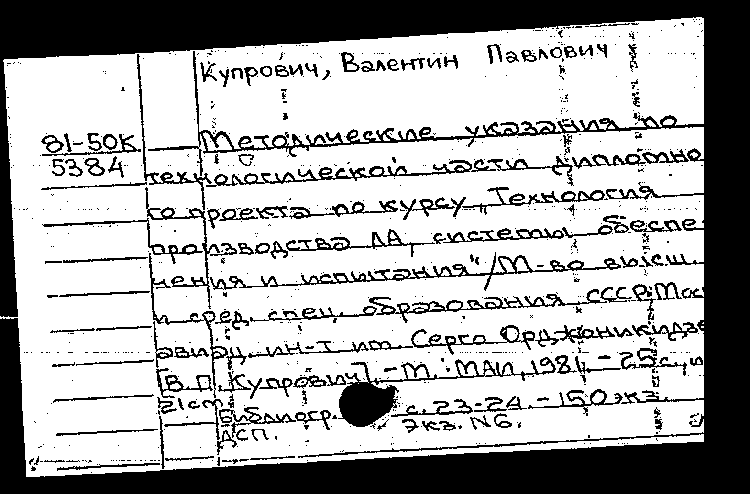 Купрович, Валентин Павлович
81-50К
5384
Методические указания по
технологической части дипломно
го проекта по курсу „Технология
производства ЛА, системы обеспе-
чения и испытания"/М-во высш.
и сред. спец. образования СССР. Мос
авиац. ин-т им. Серго Орджоникидзе
[В. П. Купрович]. - М. : МАИ, 1981. - 25 с., и
21 см.
Библиогр. с. 23-24. - 150 экз.
ДСП. Экз. N6.